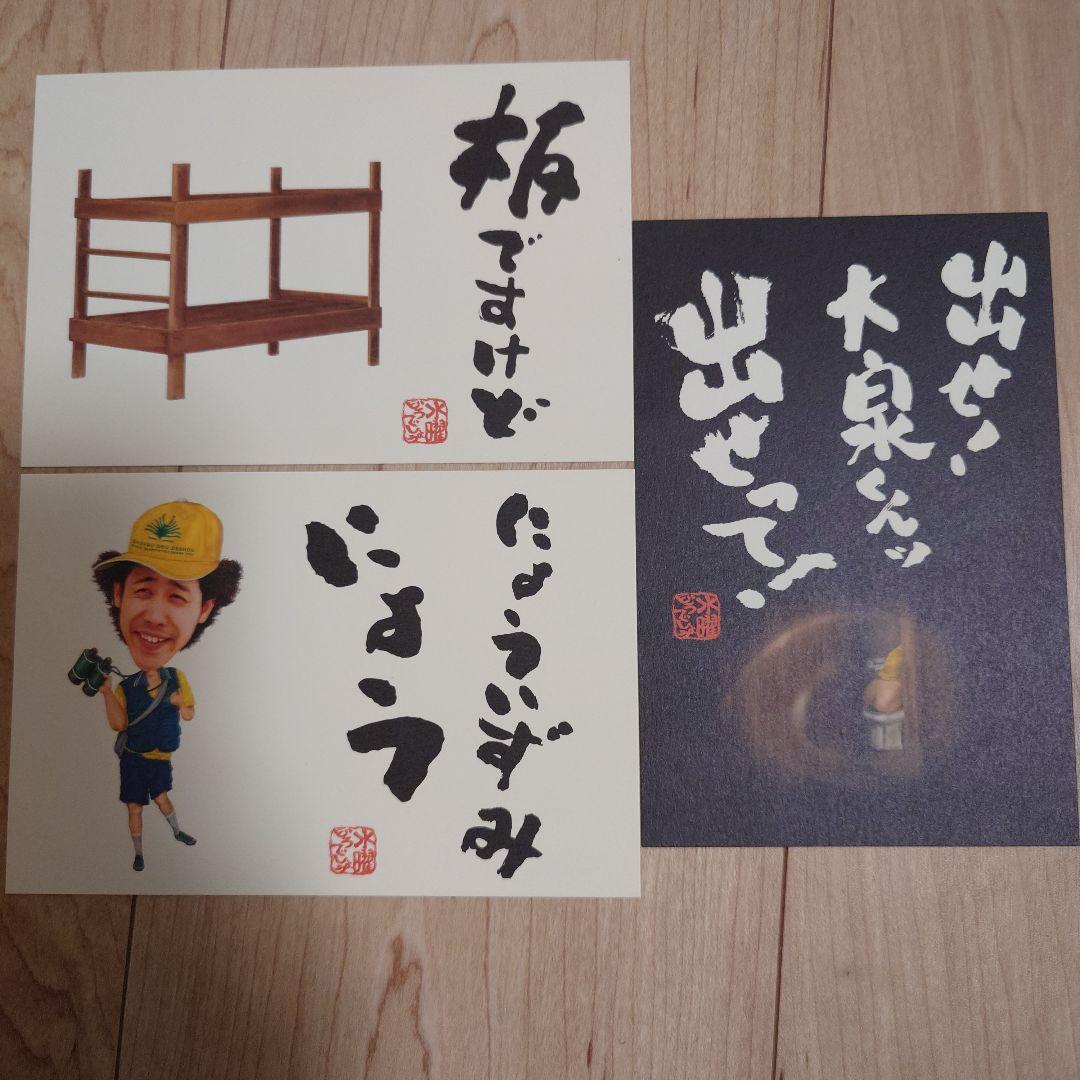 板ですけど
水曜
どうでしょう
にょういずみ
にょう
水曜
どうでしょう
出せ!
大泉くんッ
出せってよ!
水曜
どうでしょう